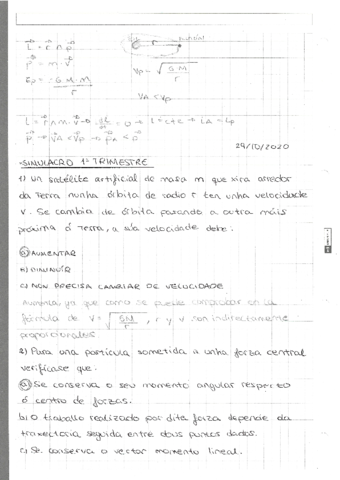 L = r ∧ p
p = m · v
Ep = -G·M·m / r
Vp = √(G·M / r)
VA < Vp
29/10/2020
SIMULACRO 1º TRIMESTRE
1) Un satélite artificial de masa m que xira arredor
da Terra nunha órbita de radio r ten unha velocidade
v. Se cambia de órbita pasando a outra máis
próxima á Terra, a súa velocidade debe:
a) AUMENTAR
b) DIMINUIR
c) NON PRECISA CAMBIAR DE VELOCIDADE
Aumenta ya que como se puede comprobar en la
fórmula de v = √(GM / r), r y v son indirectamente
proporcionales.
2) Para una partícula sometida a unha forza central
verifícase que:
a) Se conserva o seu momento angular respecto
ó centro de forzas.
b) O traballo realizado por dita forza depende da
traxectoria seguida entre dous puntos dados.
c) Se conserva o vector momento lineal.